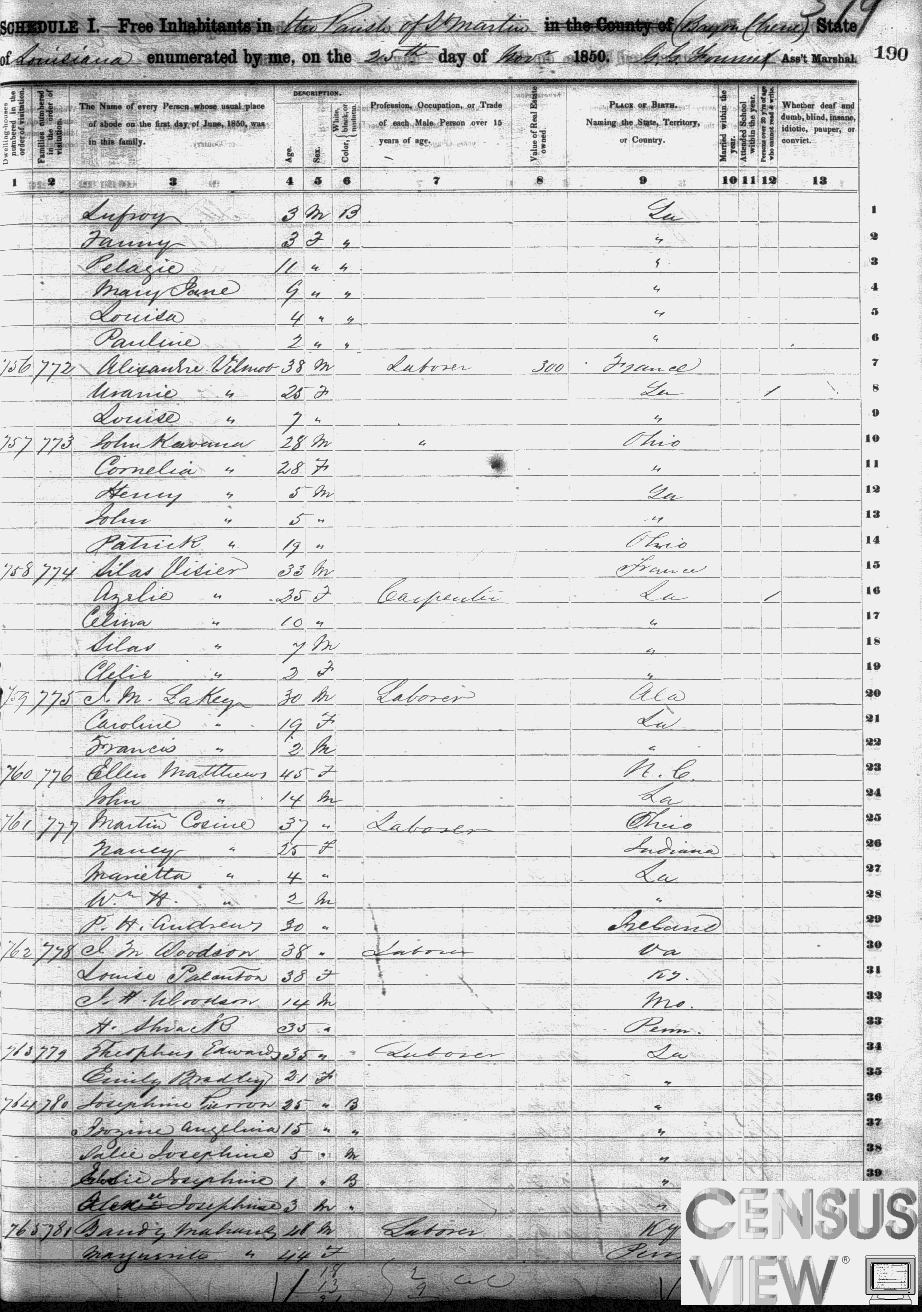 319
SCHEDULE I.—Free Inhabitants in the Parish of St Martin in the County of (Bayou Chene) State
of Louisiana enumerated by me, on the 25th day of Novr 1850. Ass't Marshal. 190
DESCRIPTION.
Dwelling-houses numbered in the order of visitation. Families numbered in the order of visitation. The Name of every Person whose usual place of abode on the first day of June, 1850, was in this family. Age. Sex. Color, White, black, or mulatto. Profession, Occupation, or Trade of each Male Person over 15 years of age. Value of Real Estate owned. PLACE OF BIRTH. Naming the State, Territory, or Country. Married within the year. Attended School within the year. Persons over 20 y'rs of age who cannot read & write. Whether deaf and dumb, blind, insane, idiotic, pauper, or convict.
1 2 3 4 5 6 7 8 9 10 11 12 13
Lufroy 3 M B La 1
Fanny 3 F " " 2
Pelagie 11 " " " 3
Mary Jane 9 " " " 4
Louisa 4 " " " 5
Pauline 2 " " " 6
756 772 Alixandre Vilmot 38 M Laborer 300 France 7
Uranie " 25 F La / 8
Louise " 7 " " 9
757 773 John Kavana 28 M " Ohio 10
Cornelia " 28 F " 11
Henry " 5 M La 12
John " 5 " " 13
Patrick " 19 " Ohio 14
758 774 Silas Visier 33 M France 15
Azelie " 25 F Carpenter La / 16
Celina " 10 " " 17
Silas " 7 M " 18
Clelie " 2 F " 19
759 775 J. M. LaKey 30 M Laborer Ala 20
Caroline " 19 F La 21
Francis " 2 M " 22
760 776 Ellen Matthews 45 F N. C. 23
John " 14 M La 24
761 777 Martin Cosine 37 " Laborer Ohio 25
Nancy " 25 F Indiana 26
Marietta " 4 " La 27
Wm H. " 2 M " 28
P. H. Andrews 30 " Ireland 29
762 778 J. M Woodson 38 " Laborer Va 30
Louise Palanton 38 F Ky. 31
J. H. Woodson 14 M Mo. 32
H. Shrack 35 " Penn. 33
763 779 Theophus Edwards 35 " " Laborer La 34
Emily Bradley 21 F " 35
764 780 Josephine Pierron 25 " B " 36
Frozine Angelina 15 " " " 37
Julie Josephine 5 " M " 38
Josephine 1 " B " 39
Josephine 3 M " "
765 781 Mahank 48 M Laborer Ky
Marguerite " 44 F Penn
18
13
CENSUS
VIEW®